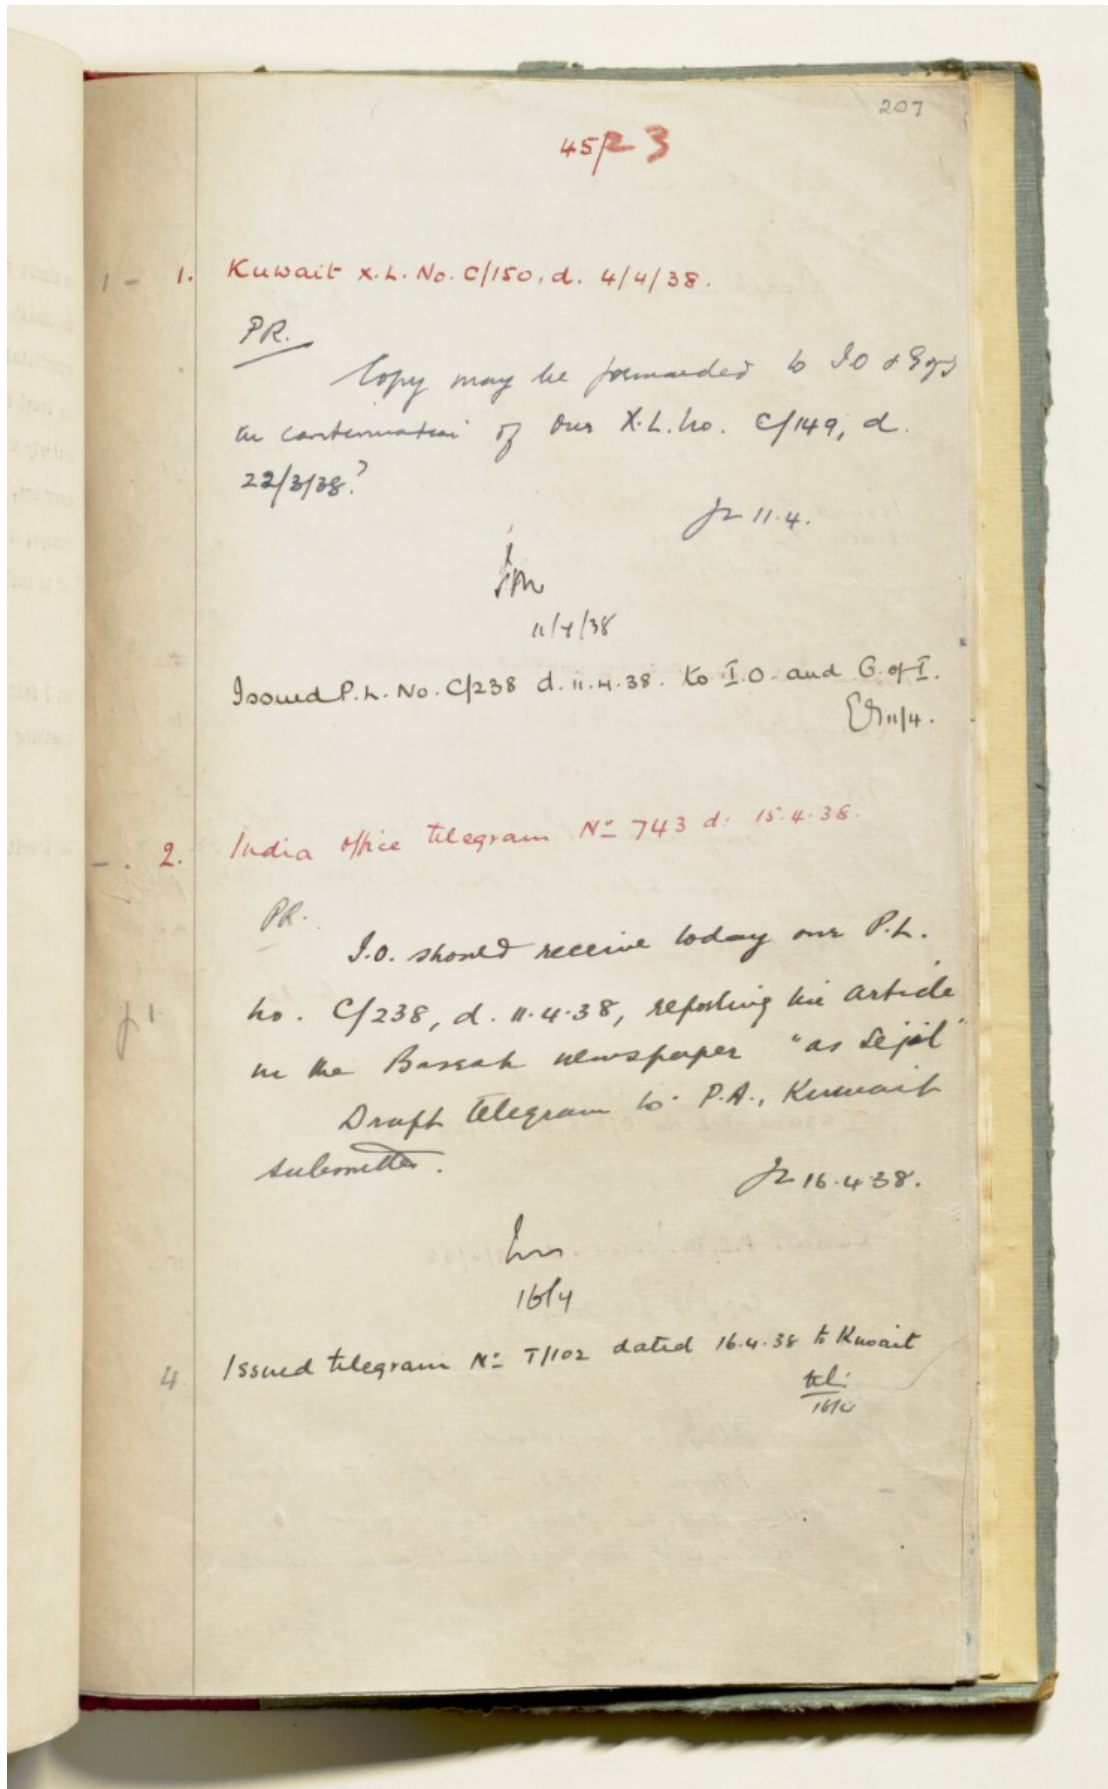 207
45/23
1 - 1. Kuwait X.L. No. C/150, d. 4/4/38.
PR.
Copy may be forwarded to I.O &
in continuation of our X.L. No. C/149, d.
22/3/38?
11.4.
11/4/38
Issued P.L. No. C/238 d. 11.4.38. to I.O. and G. of I.
11/4.
- . 2. India office telegram No 743 d: 15.4.38.
PR.
I.O. should receive today our P.L.
p 1. No. C/238, d. 11.4.38, reporting the article
in the Basrah newspaper "as Sejil"
Draft telegram to P.A., Kuwait
submitted.
16.4.38.
16/4
4. Issued telegram No T/102 dated 16.4.38 to Kuwait
16/4